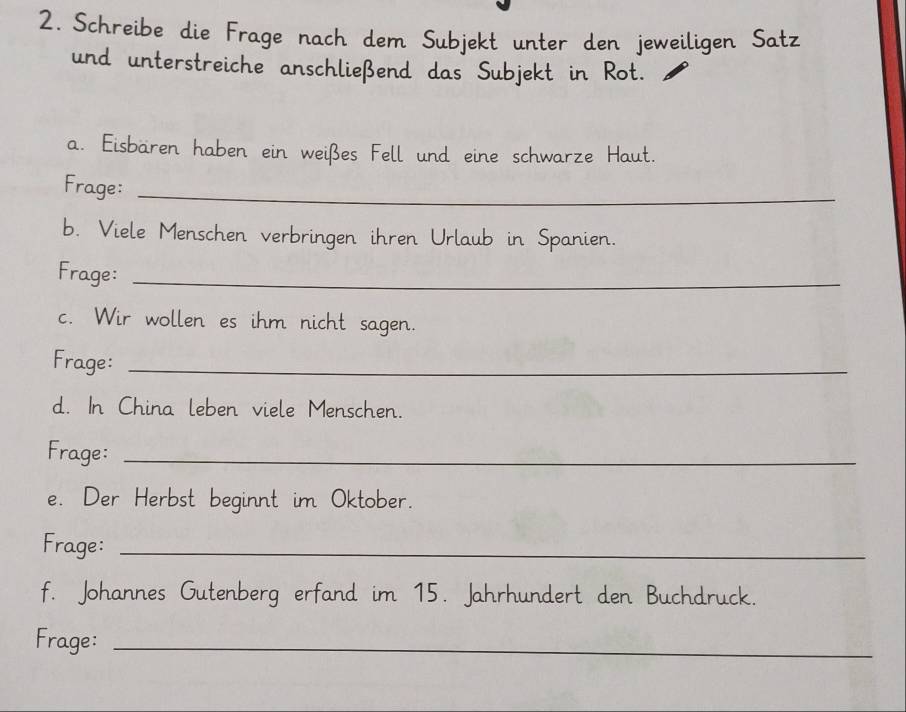 2. Schreibe die Frage nach dem Subjekt unter den jeweiligen Satz
und unterstreiche anschließend das Subjekt in Rot.
a. Eisbären haben ein weißes Fell und eine schwarze Haut.
Frage:
b. Viele Menschen verbringen ihren Urlaub in Spanien.
Frage:
c. Wir wollen es ihm nicht sagen.
Frage:
d. In China leben viele Menschen.
Frage:
e. Der Herbst beginnt im Oktober.
Frage:
f. Johannes Gutenberg erfand im 15. Jahrhundert den Buchdruck.
Frage: